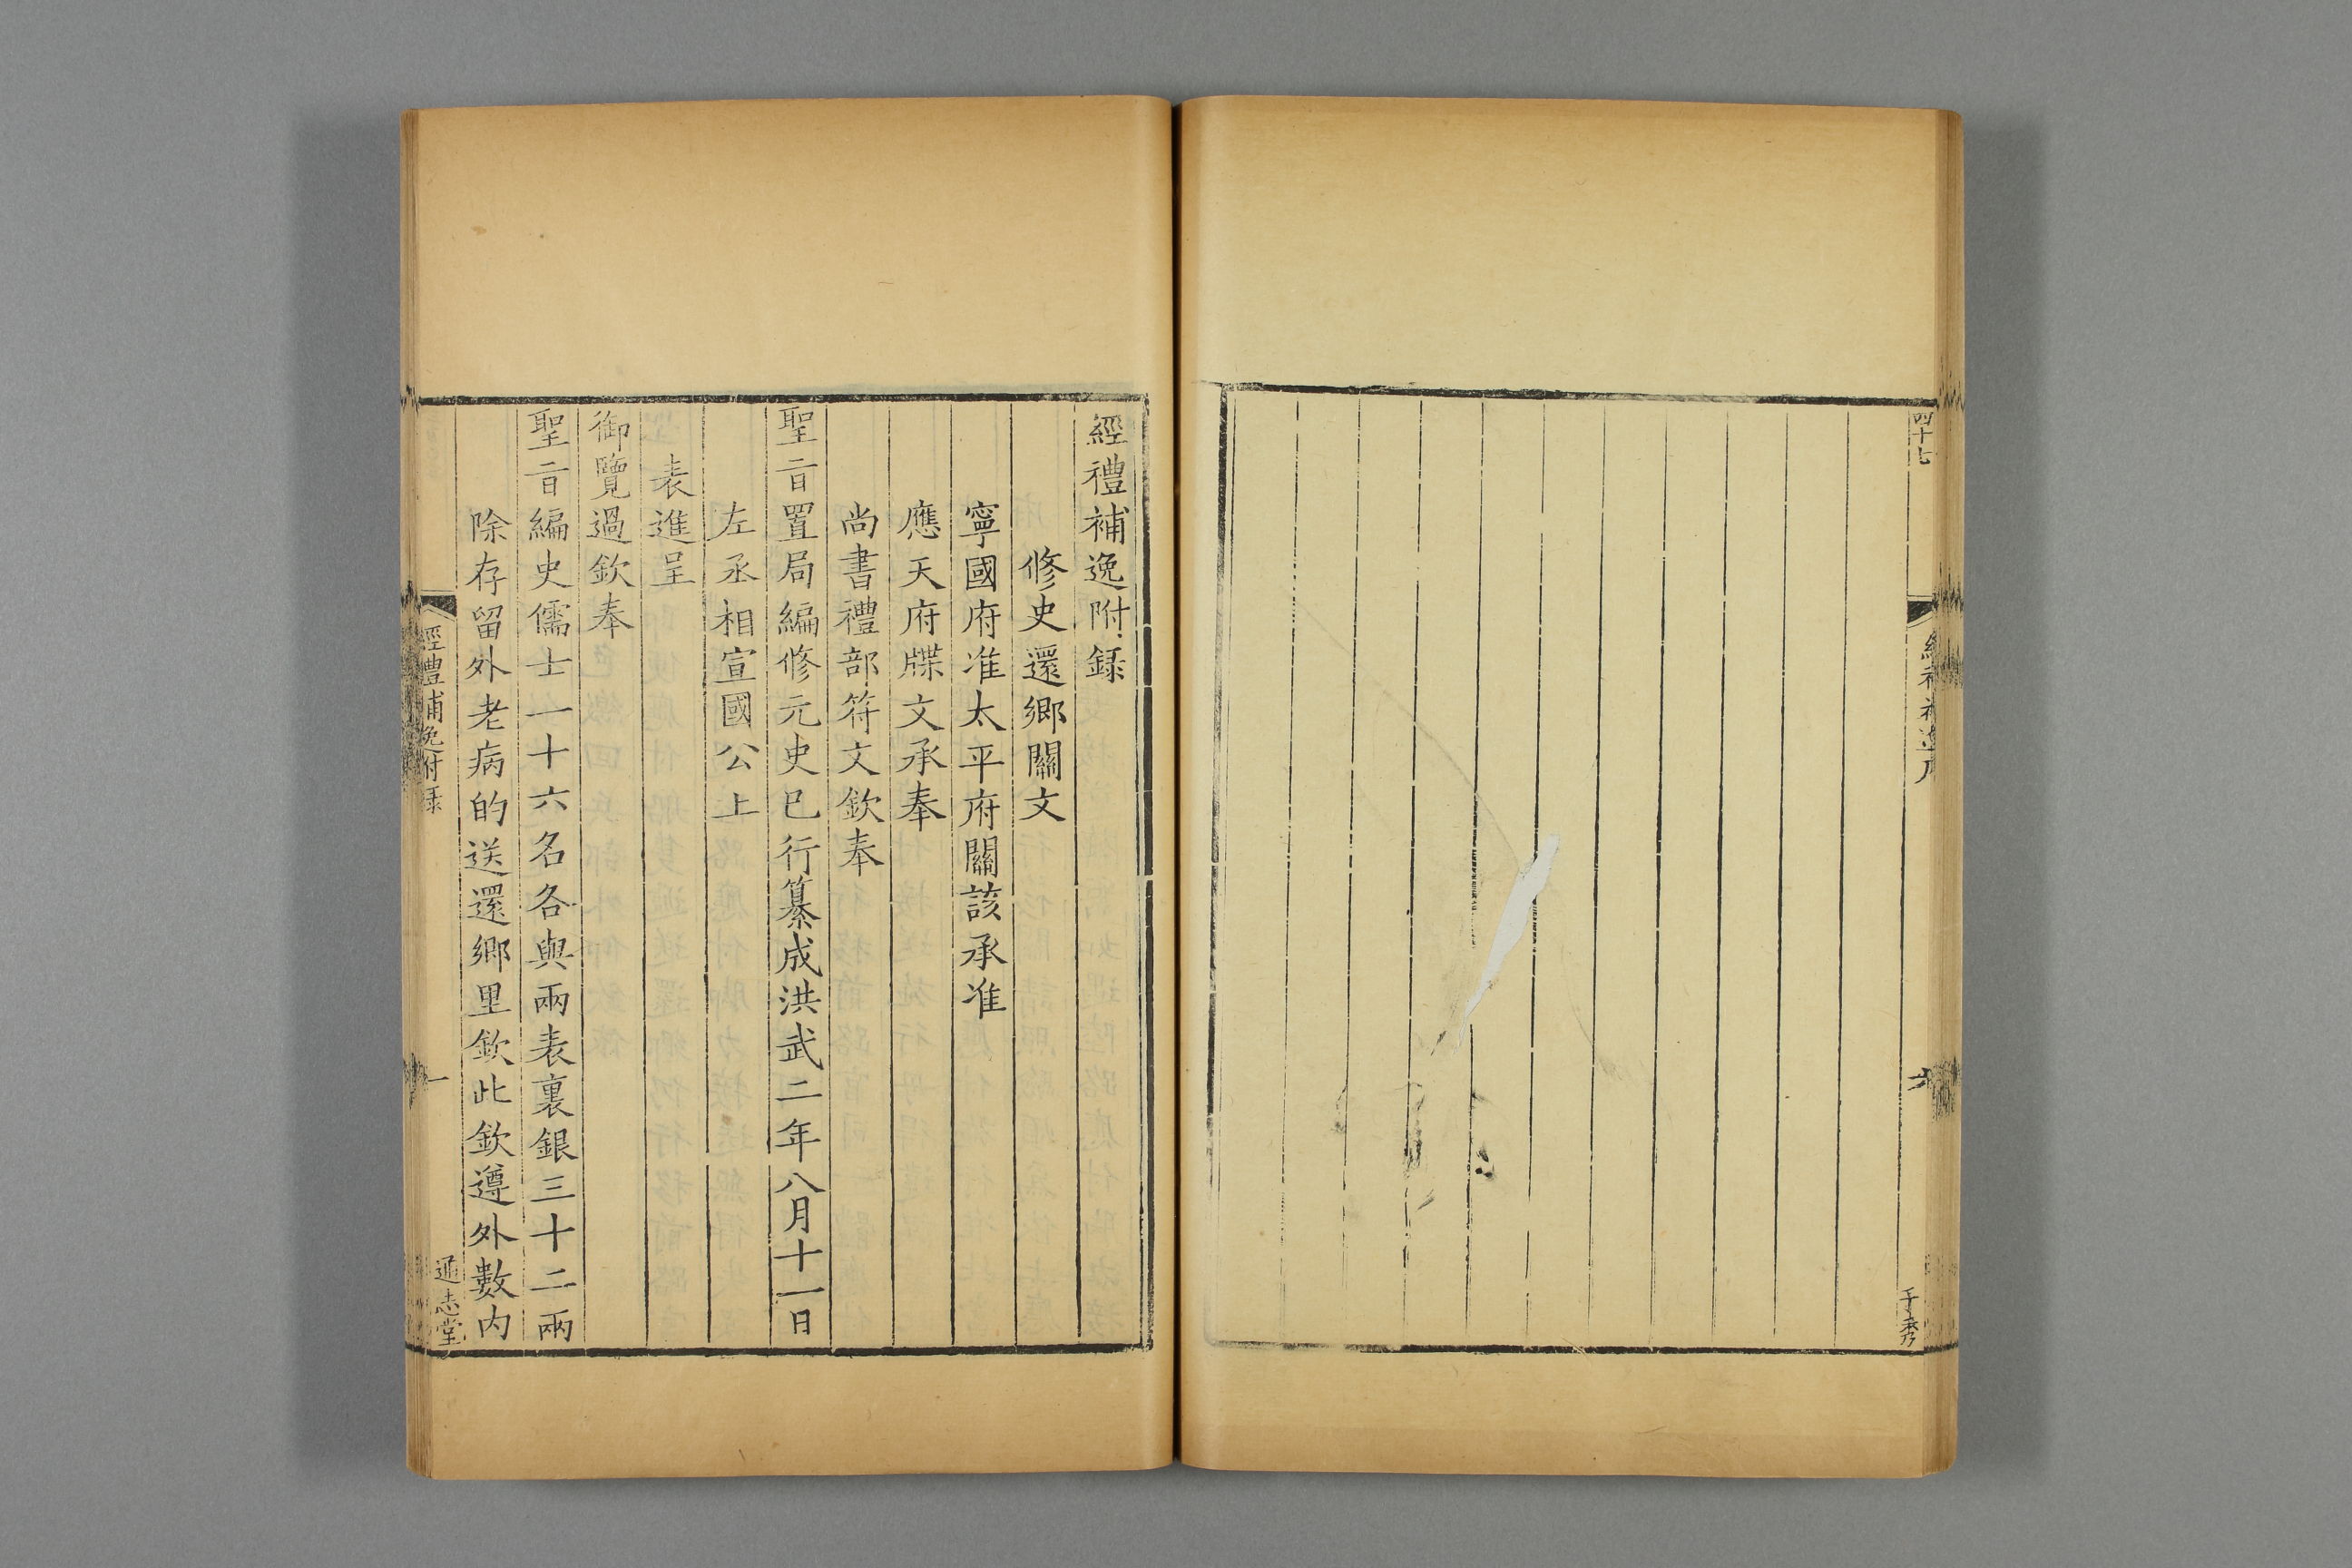 四十七
經禮補逸序
六
于秀
經禮補逸附錄
修史還鄉關文
寧國府准太平府關該承准
應天府牒文承奉
尚書禮部符文欽奉
聖旨置局編修元史已行纂成洪武二年八月十一日
左丞相宣國公上
表進呈
御覽過欽奉
聖旨編史儒士一十六名各與兩表裏銀三十二兩
除存留外老病的送還鄉里欽此欽遵外數內
經禮補逸附錄
一
通志堂